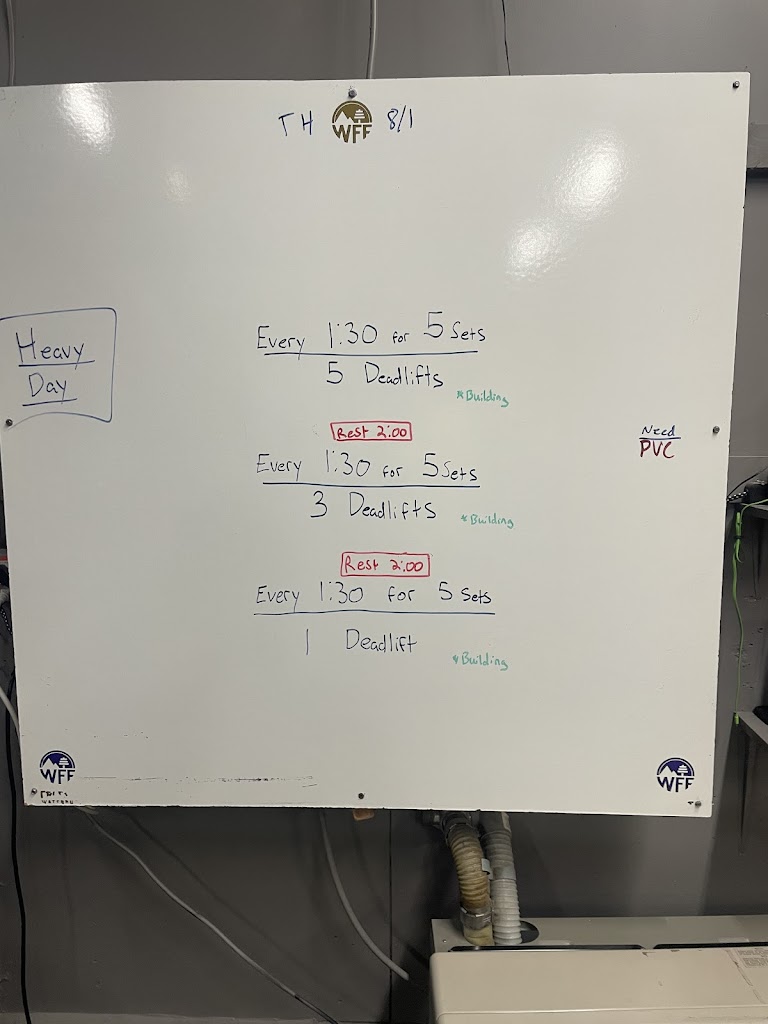 TH WFF 8/1
Heavy
Day
Every 1:30 for 5 Sets
5 Deadlifts
*Building
Rest 2:00
Every 1:30 for 5 Sets
3 Deadlifts
*Building
Rest 2:00
Every 1:30 for 5 Sets
1 Deadlift
*Building
Need
PVC
WFF
WFF